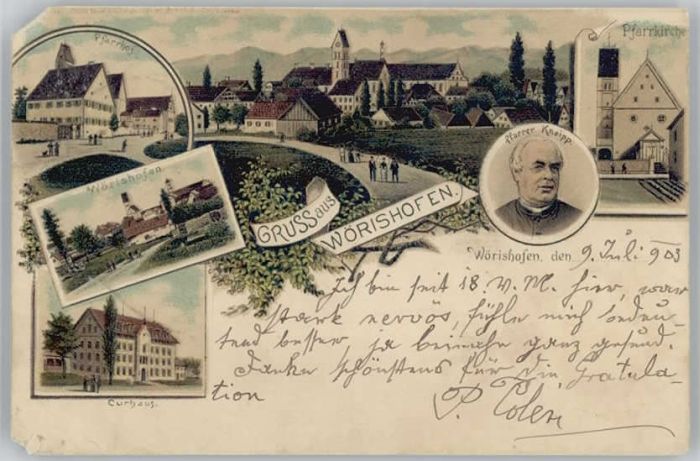 Pfarrhof
Pfarrkirche
Pfarrer Kneipp
Wörishofen.
GRUSS aus
WÖRISHOFEN.
Wörishofen, den 9. Juli 903
Ich bin seit 18. v. M. hier, war
stark nervös, fühle mich bedeu-
tend besser, ja beinahe ganz gesund.
Danke schönstens für die Gratula-
tion
Curhaus.